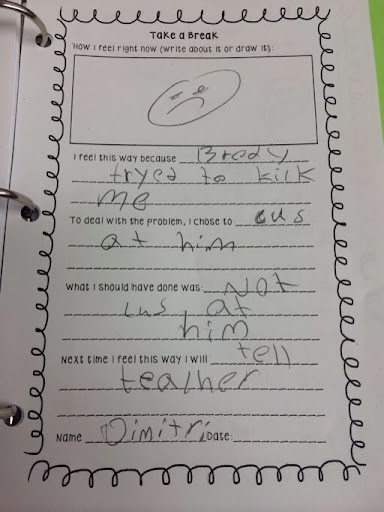 Take a Break
How I feel right now (write about it or draw it):
I feel this way because Brody
tryed to kick
me
To deal with the problem, I chose to cus
at him
What I should have done was: Not
cus at
him
Next time I feel this way I will tell
teacher
Name Dimitri Date: